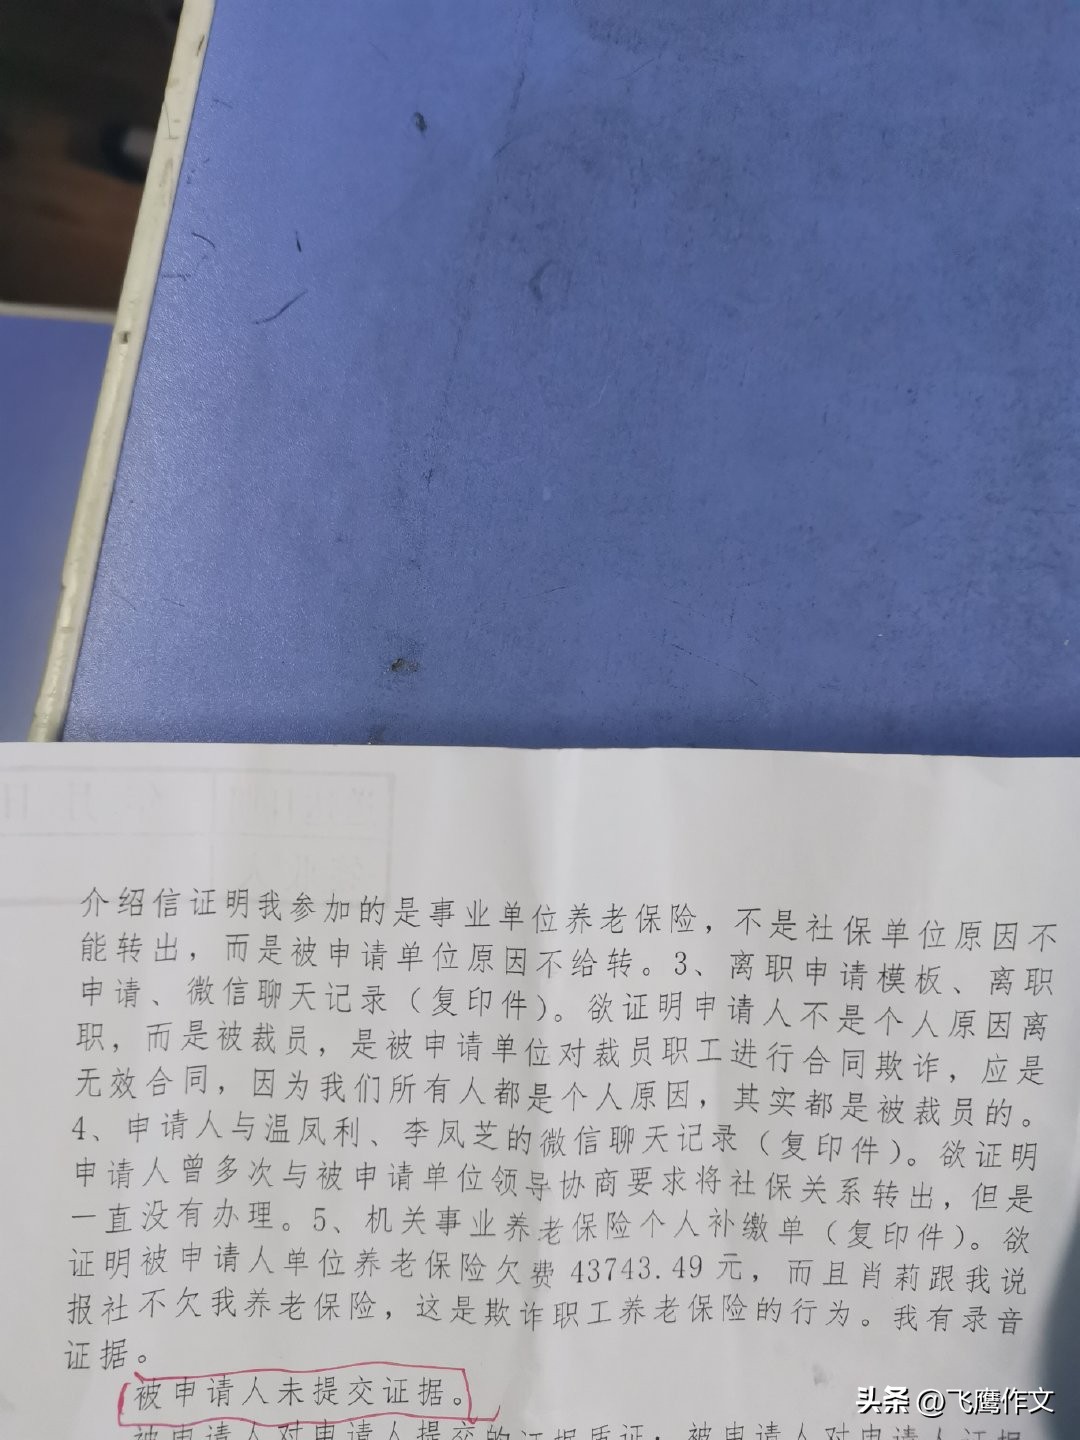 介绍信证明我参加的是事业单位养老保险，不是社保单位原因不
能转出，而是被申请单位原因不给转。3、离职申请模板、离职
申请、微信聊天记录（复印件）。欲证明申请人不是个人原因离
职，而是被裁员，是被申请单位对裁员职工进行合同欺诈，应是
无效合同，因为我们所有人都是个人原因，其实都是被裁员的。
4、申请人与温凤利、李凤芝的微信聊天记录（复印件）。欲证明
申请人曾多次与被申请单位领导协商要求将社保关系转出，但是
一直没有办理。5、机关事业养老保险个人补缴单（复印件）。欲
证明被申请人单位养老保险欠费43743.49元，而且肖莉跟我说
报社不欠我养老保险，这是欺诈职工养老保险的行为。我有录音
证据。
被申请人未提交证据。
被申请人对申请人提交的证据质证：被申请人对申请人证据
头条 @飞鹰作文